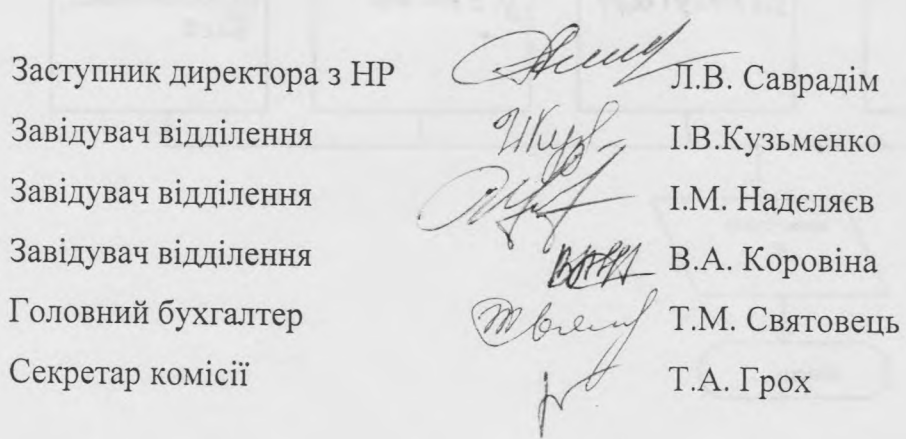 Заступник директора з НР Л.В. Саврадім
Завідувач відділення І.В.Кузьменко
Завідувач відділення І.М. Надєляєв
Завідувач відділення В.А. Коровіна
Головний бухгалтер Т.М. Святовець
Секретар комісії Т.А. Грох